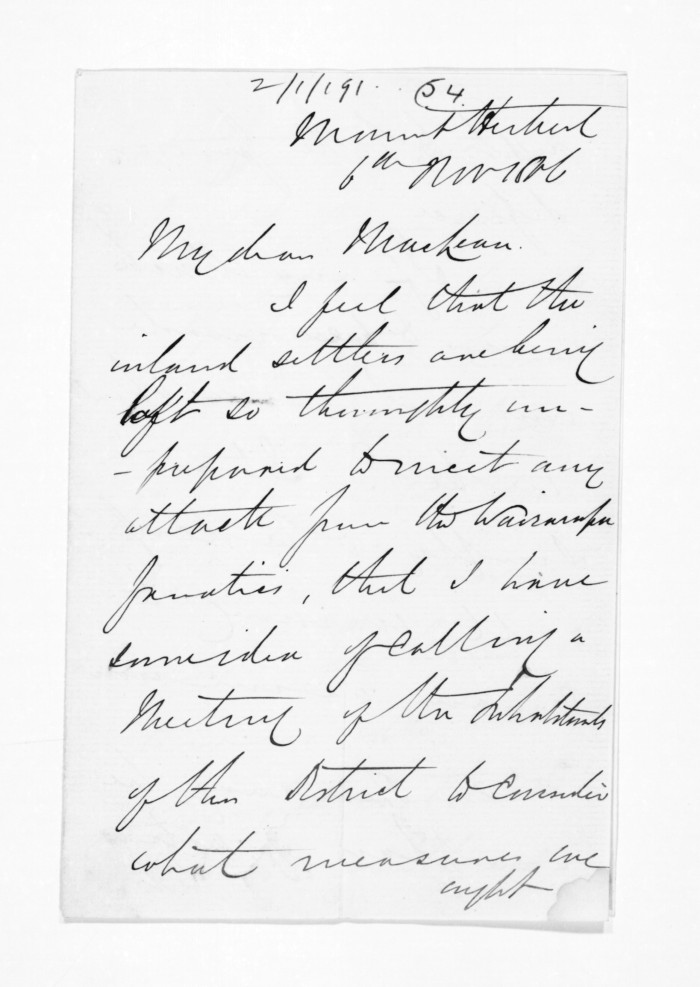 2/1/191. 54.
Mount Herbert
6th Nov 186
My dear MacLean.
I feel that the
inland settlers are being
left so thoroughly un-
-prepared to meet any
attack from the Wairarapa
fanatics, that I have
some idea of calling a
Meeting of the Inhabitants
of this District to consider
what measures we
ought